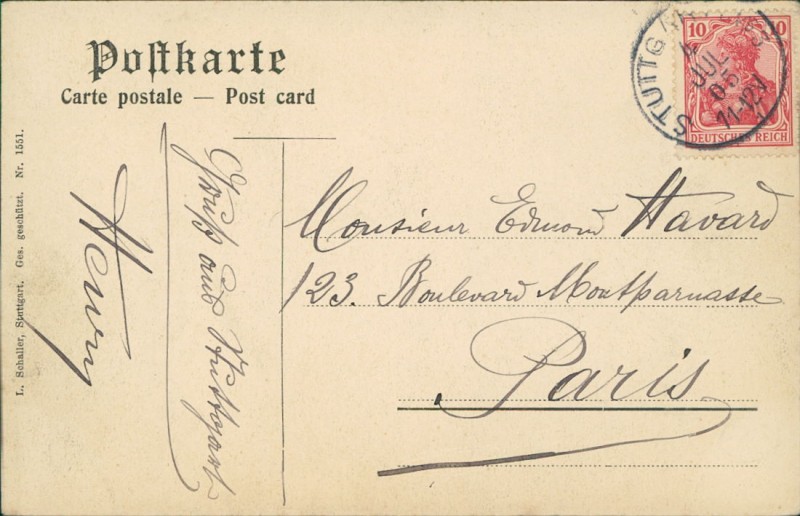 Postkarte
Carte postale — Post card
10 10
DEUTSCHES REICH
STUTTG
JUL
05
11-12V
Gruß aus Stuttgart
Henry
Monsieur Edmond Havard
123. Boulevard Montparnasse
Paris
L. Schaller, Stuttgart. Ges. geschützt. Nr. 1551.